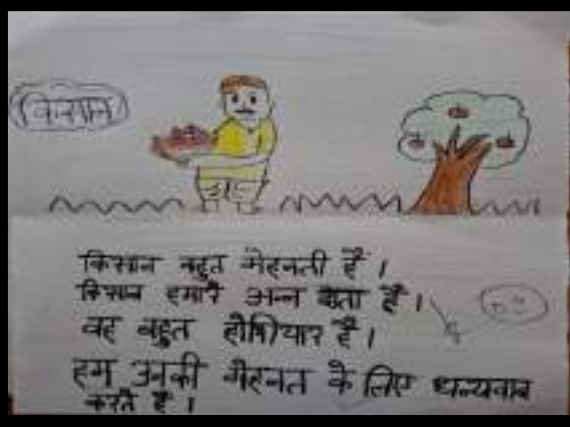 किसान
किसान बहुत मेहनती है।
किसान हमारे अन्न दाता है।
वह बहुत होशियार है।
हम उनकी मेहनत के लिए धन्यवाद
करते है।